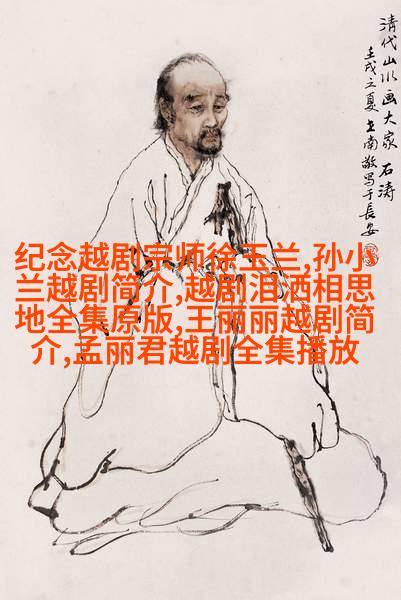 清代山水画大家 石涛
壬戌之夏 土南敬写于長安
纪念越剧宗师徐玉兰,孙小
兰越剧简介,越剧泪洒相思
地全集原版,王丽丽越剧简
介,孟丽君越剧全集播放